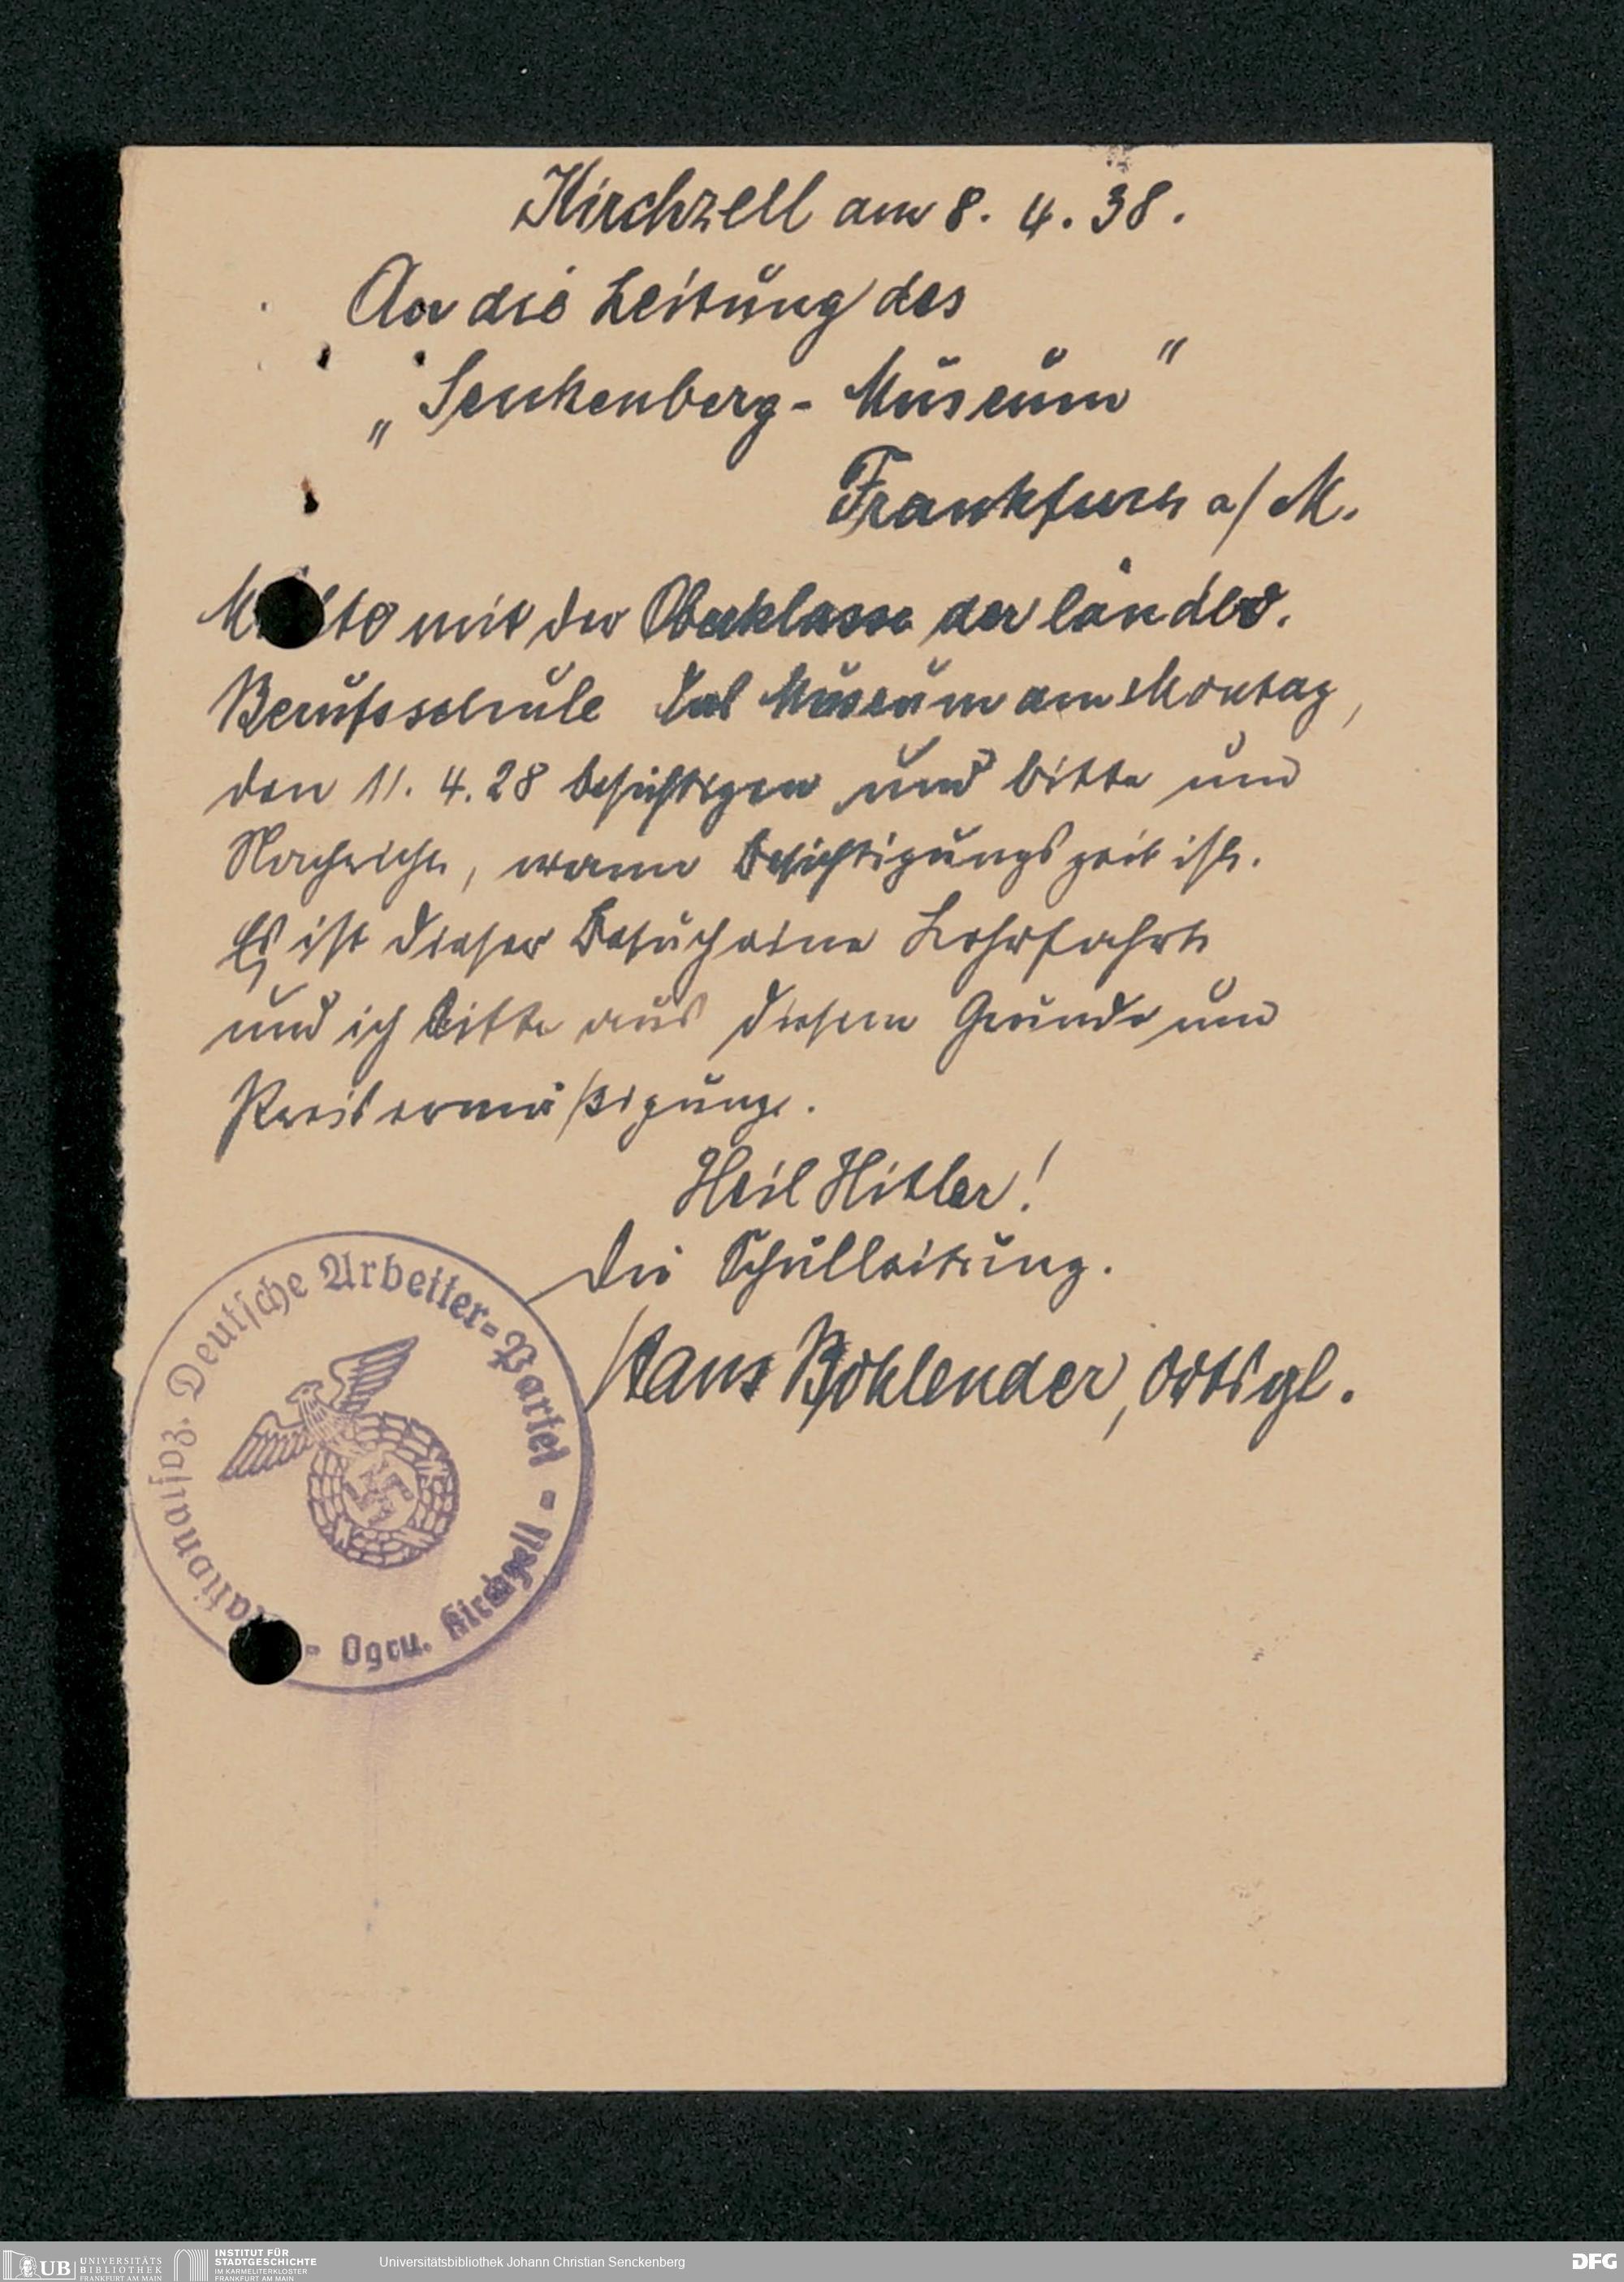 Kirchzell am 8. 4. 38.
An die Leitung des
„Senkenberg-Museum"
Frankfurt a/M.
mit der Oberklasse der länder.
Berufsschule das Museum am Montag,
den 11. 4. 28 besichtigen und bitte um
Nachricht, wann Besichtigungszeit ist.
Es ist dieser Besuch eine Lehrfahrt
und ich bitte aus diesem Grunde um
Preisermäßigung.
Heil Hitler!
Die Schulleitung.
Hans Bohlender,
Nationalsoz. Deutsche Arbeiter-Partei
- Ogru. Kirchzell -
UB UNIVERSITÄTS BIBLIOTHEK FRANKFURT AM MAIN
INSTITUT FÜR STADTGESCHICHTE IM KARMELITERKLOSTER FRANKFURT AM MAIN
Universitätsbibliothek Johann Christian Senckenberg
DFG